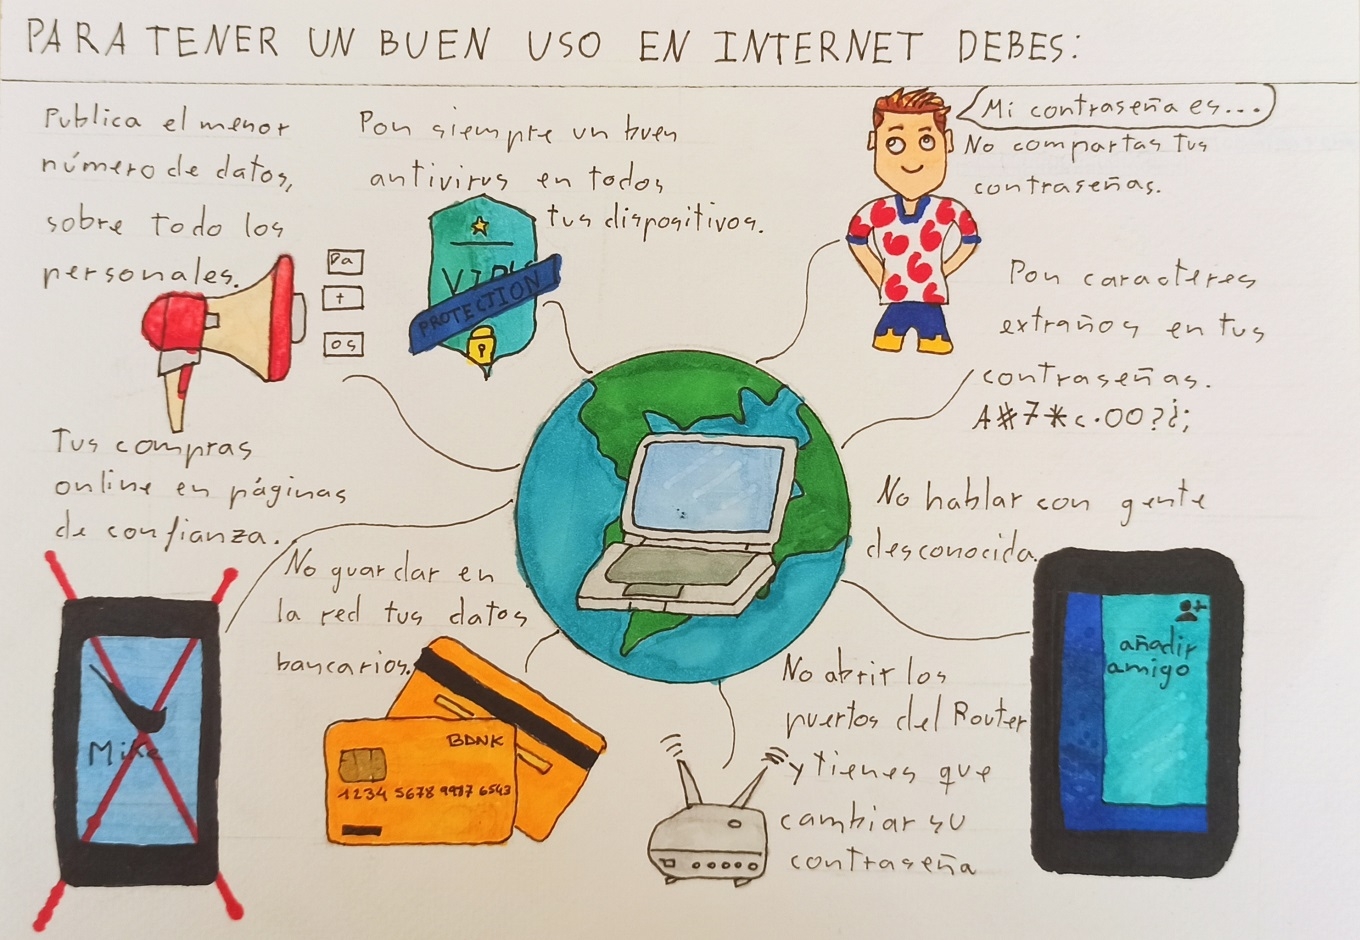 PARA TENER UN BUEN USO EN INTERNET DEBES:
Publica el menor
número de datos,
sobre todo los
personales.
Da
t
os
Pon siempre un buen
antivirus en todos
tus dispositivos.
VIRUS
PROTECTION
Mi contraseña es...
No compartas tus
contraseñas.
Pon caracteres
extraños en tus
contraseñas.
A#7*c.00?¿;
Tus compras
online en páginas
de confianza.
Mike
No guardar en
la red tus datos
bancarios.
BANK
1234 5678 9987 6543
No hablar con gente
desconocida.
añadir
amigo
No abrir los
puertos del Router
y tienes que
cambiar su
contraseña